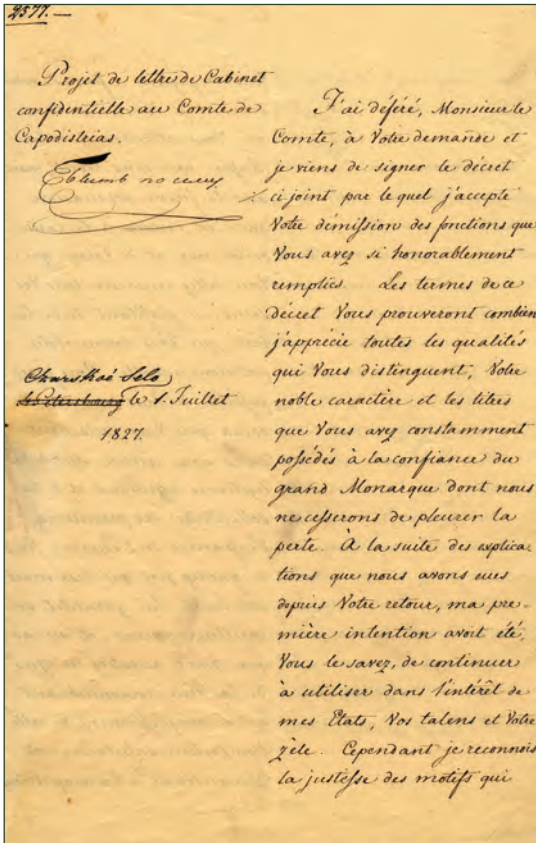 2577.—
Projet de lettre de Cabinet
confidentielle au Comte de
Capodistrias.
Быть по сему
Charskoé Selo
St Petersbourg le 1. Juillet
1827.
J'ai déféré, Monsieur le
Comte, à Votre demande et
je viens de signer le décret
ci joint par le quel j'accepte
Votre démission des fonctions que
Vous avez si honorablement
remplies. Les termes de ce
décret Vous prouveront combien
j'apprécie toutes les qualités
qui Vous distinguent, Votre
noble caractère et les titres
que Vous avez constamment
possédés à la confiance du
grand Monarque dont nous
ne cesserons de pleurer la
perte. À la suite des explica-
tions que nous avons eues
depuis Votre retour, ma pre-
mière intention avoit été,
Vous le savez, de continuer
à utiliser dans l'intérêt de
mes États, Vos talens et Votre
zèle. Cependant je reconnois
la justesse des motifs qui